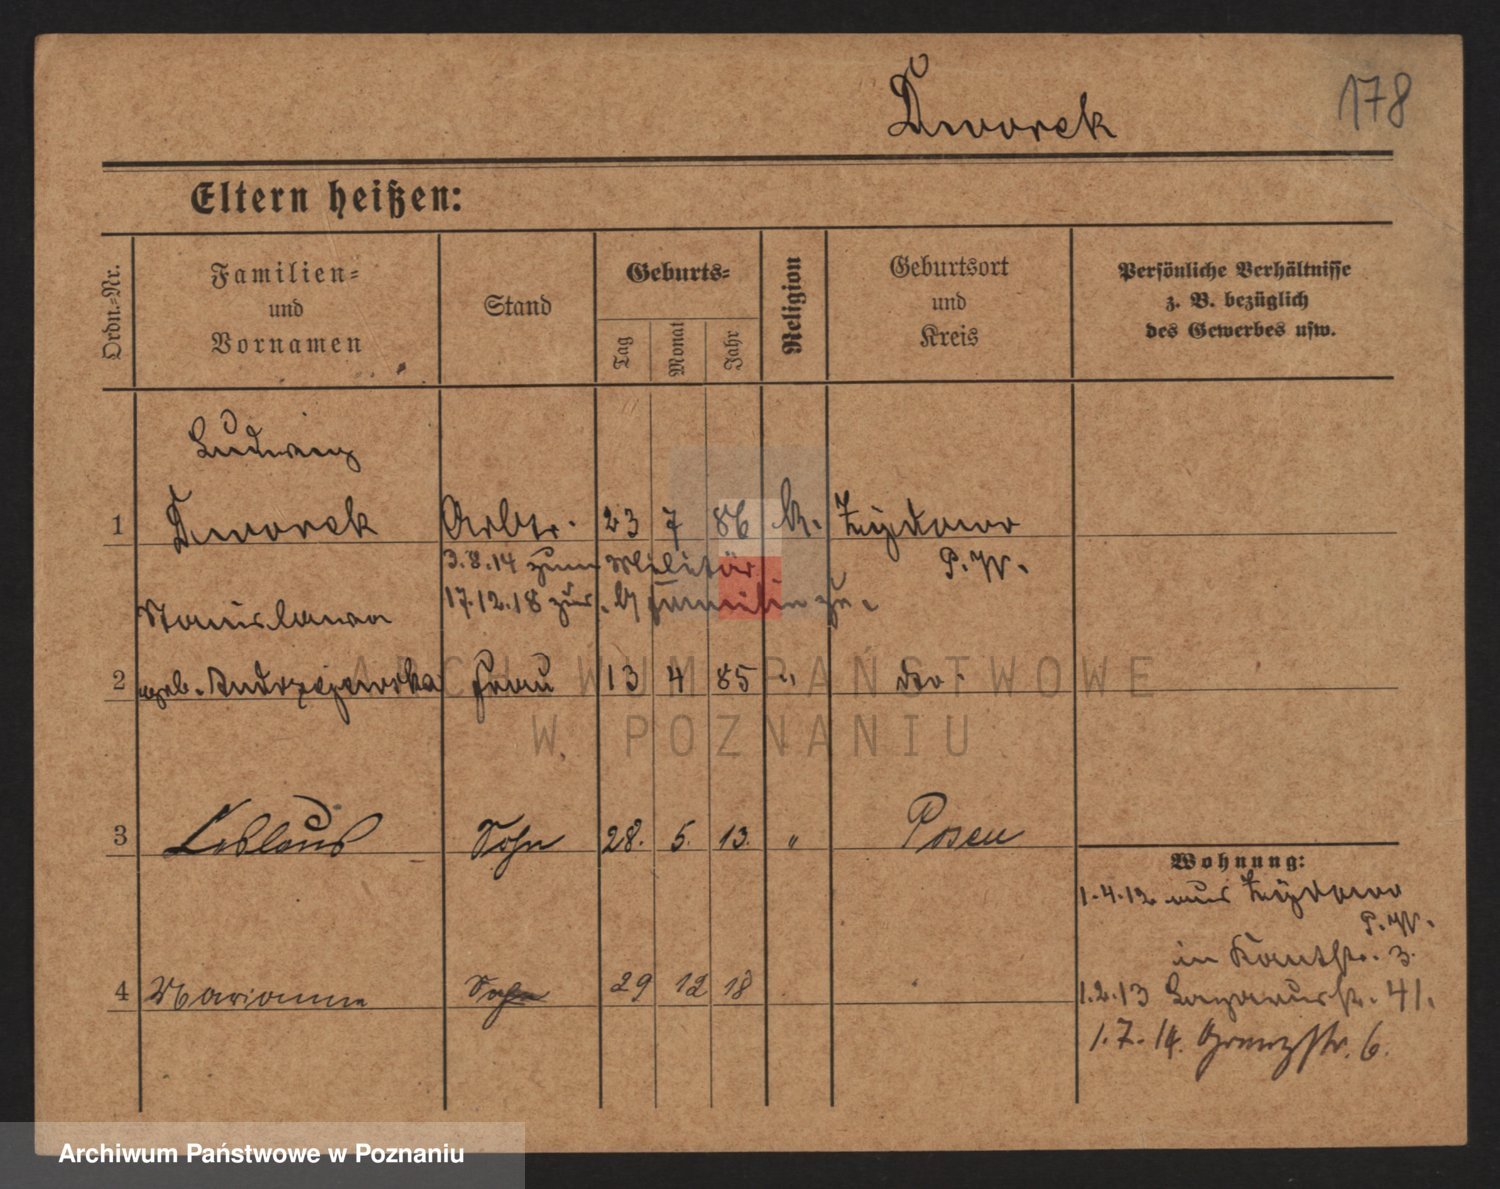 Dworek
178
Eltern heißen:
Ordn.-Nr.
Familien-
und
Vornamen
Stand
Geburts-
Tag
Monat
Jahr
Religion
Geburtsort
und
Kreis
Persönliche Verhältnisse
z. B. bezüglich
des Gewerbes usw.
Ludwig
1 Dworek Arbtr. 23 7 86 k. Zydowo
3.8.14 zum Militär P.W.
17.12.18 zur Familie
Stanislawa
2 geb. Andrzejewska Frau 13 4 85 " do.
3 Ladislaus Sohn 28. 5. 13. " Posen
Wohnung:
1.4.12 aus Zydowo
P.W.
in Kantstr. 3.
4 Marianna Sohn 29 12 18
1.2.13 Lazarusstr. 41.
1.7.14. Grenzstr. 6.
ARCHIWUM PAŃSTWOWE
W POZNANIU
Archiwum Państwowe w Poznaniu